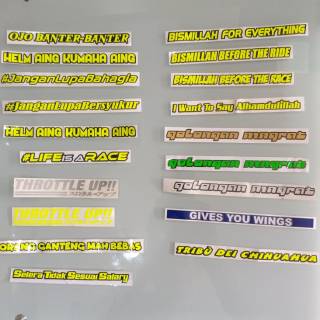 OJO BANTER-BANTER
HELM AING KUMAHA AING
#JanganLupaBahagia
#JanganLupaBersyukur
HELM AING KUMAHA AING
#LIFEisARACE
THROTTLE UP!!
THROTTLE UP!!
ORANG GANTENG MAH BEBAS
Selera Tidak Sesuai Salary
BISMILLAH FOR EVERYTHING
BISMILLAH BEFORE THE RIDE
BISMILLAH BEFORE THE RACE
I Want To Say Alhamdulillah
golongan mngrat
golongan mngrat
golongan mngrat
GIVES YOU WINGS
TRIBÙ DEI CHIHUAHUA